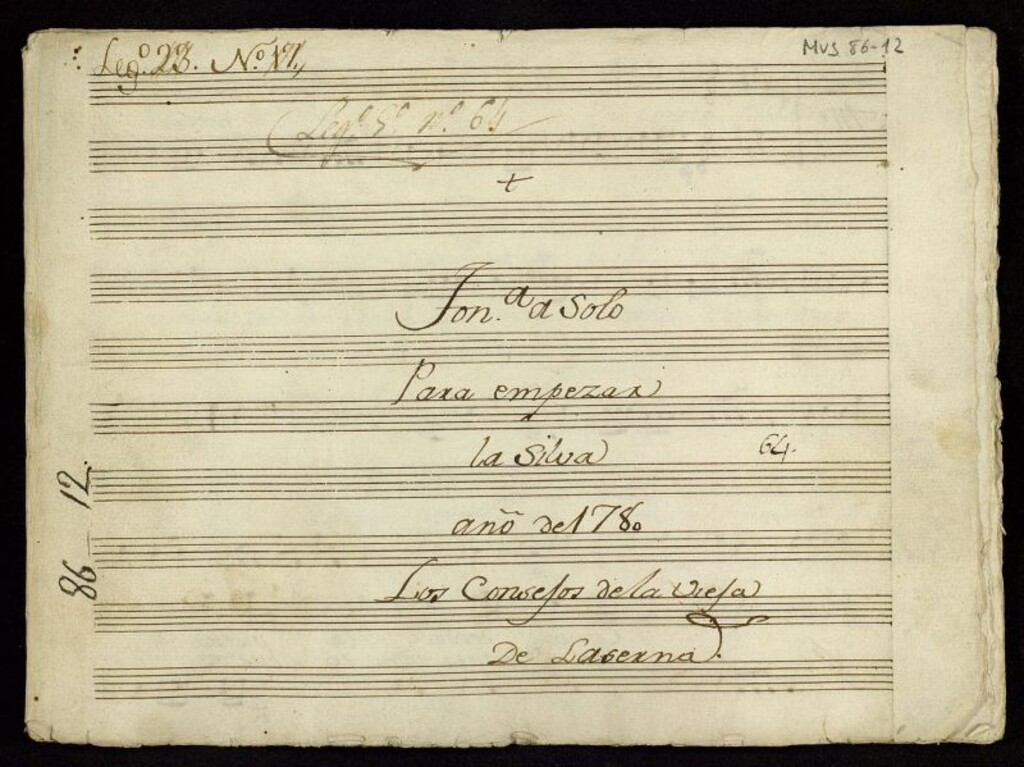 Leg.º 23. N.º 17.
MUS 86-12
Leg.º 5.º n.º 64
+
Ton.ª a Solo
Para empezar
la Silva
64.
año de 1780
Los Consejos de la Vieja
De Laserna.
86 12.